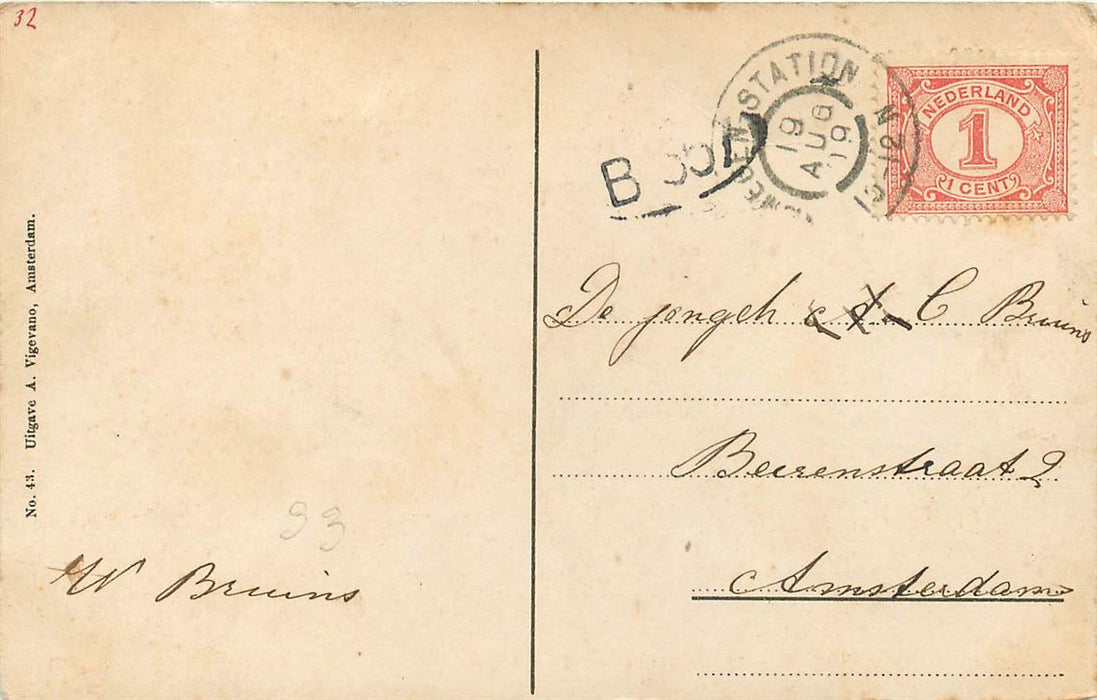 32
STATION
19 AUG 19
12 N
NEDERLAND
1
1 CENT
B
De jongeh C Bruins
Beerenstraat 2
Amsterdam
No. 43. Uitgave A. Vigevano, Amsterdam.
33
W Bruins